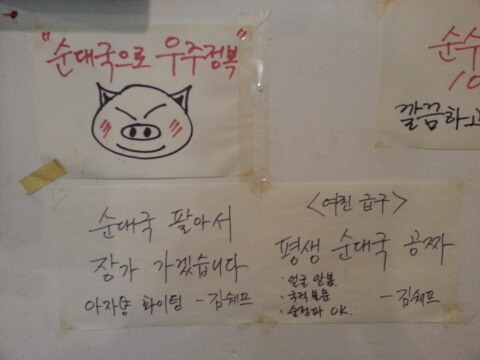 "순대국으로 우주정복"
순대국 팔아서
장가 가겠습니다
아자뵹 화이팅 - 김쉐프
<여친 급구>
평생 순대국 공짜
· 얼굴 안봄.
· 국적 불문
· 순정파 OK.
- 김쉐프
순수
10
깔끔하고